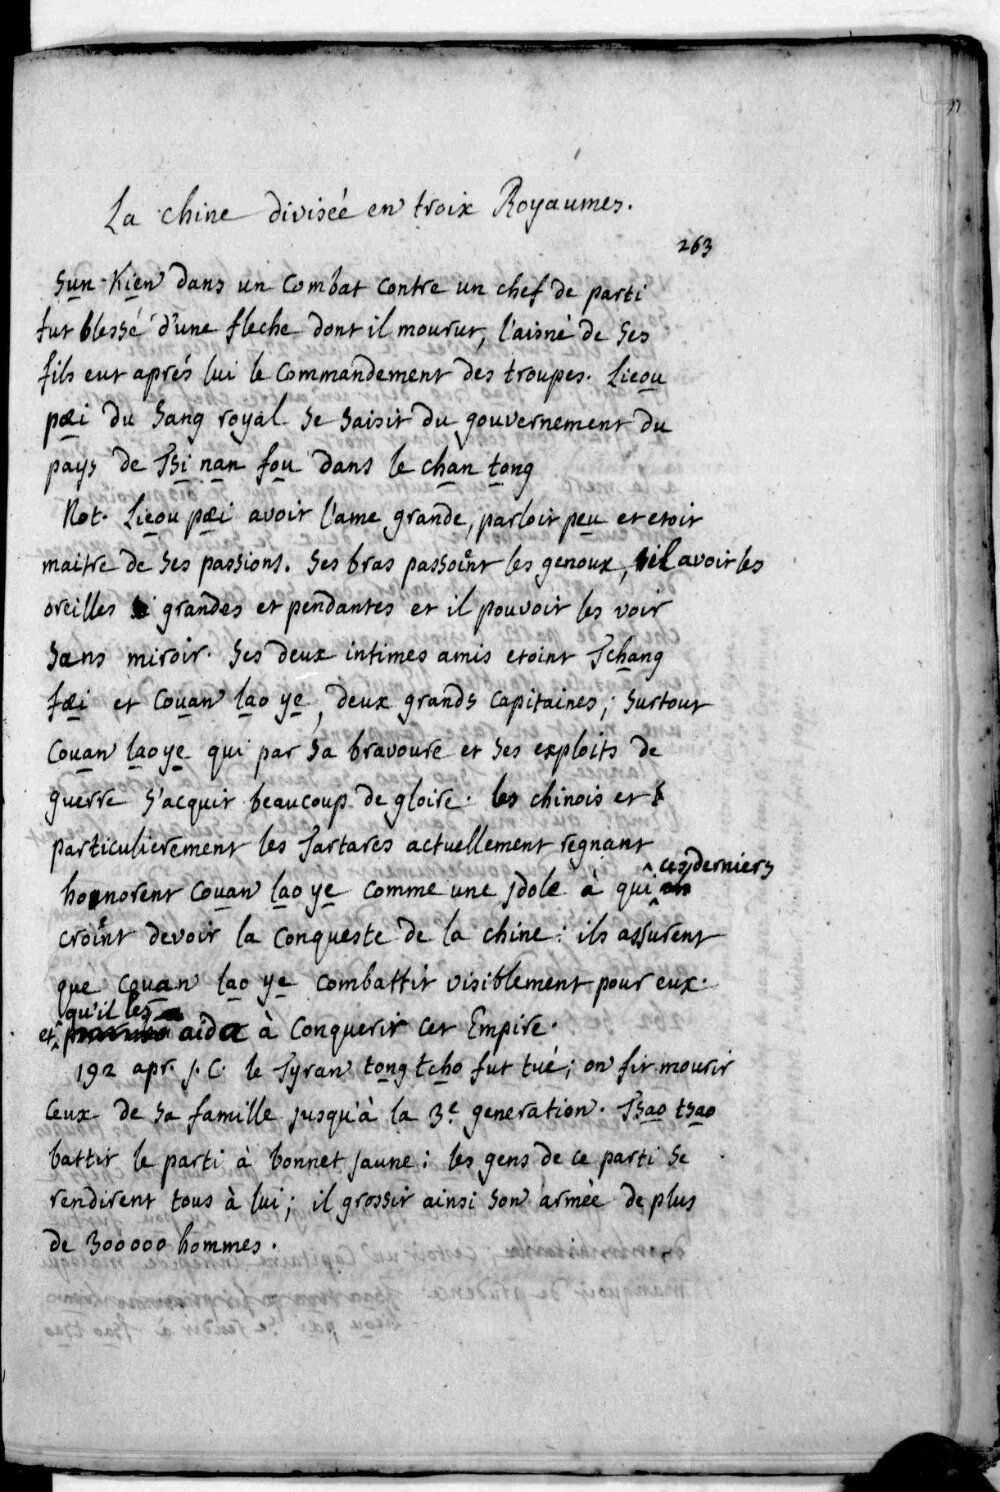 La chine divisée en troix Royaumes.
263
Sun-Kien dans un combat contre un chef de parti
fut blessé d'une fleche dont il mourut, l'aisné de ses
fils eut aprés lui le commandement des troupes. Lieou
pæi du sang royal se saisit du gouvernement du
pays de Tsi nan fou dans le chan tong
Not. Lieou pæi avoit l'ame grande, parloit peu et etoit
maitre de ses passions. ses bras passoient les genoux, il avoit les
oreilles grandes et pendantes et il pouvoit les voir
sans miroir. ses deux intimes amis etoint Tchang
fæi et couan lao ye, deux grands capitaines; surtout
couan lao ye qui par sa bravoure et ses exploits de
guerre s'acquit beaucoup de gloire. les chinois et
particulierement les Tartares actuellement regnant
honnorent couan lao ye comme une jdole à qui ces derniers
croient devoir la conqueste de la chine: ils assurent
que couan lao ye combattit visiblement pour eux.
et qu'il les aida à conquerir cet Empire.
192 apr. J. C. le Tyran tong tcho fut tué; on fit mourir
ceux de sa famille jusqu'à la 3e. generation. Tsao tsao
battit le parti à bonnet jaune: les gens de ce parti se
rendirent tous à lui; il grossit ainsi son armée de plus
de 300000 hommes.